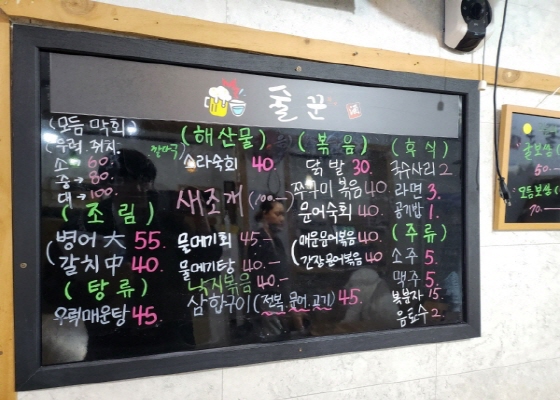 술꾼
(모듬 막회)
(우럭. 쥐치.
소 → 60.
중 → 80.
대 → 100.
(조림)
(병어 大 55
갈치 中 40.
(탕류)
우럭매운탕 45.
(해산물)
소라숙회 40.
새조개 (100.—)
물메기회 45.
물메기탕 40.—
낙지볶음 40.—
삼합구이 (전복. 문어. 고기) 45.
(볶음)
닭발 30.
쭈꾸미볶음 40.
문어숙회 40.
(매운문어볶음 40
간장문어볶음 40
(후식)
국수사리 2
라면 3.
공기밥 1.
(주류)
소주 5.
맥주 5.
복분자 15.
음료수 2.
굴보쌈
50.—
모듬보쌈
70.—